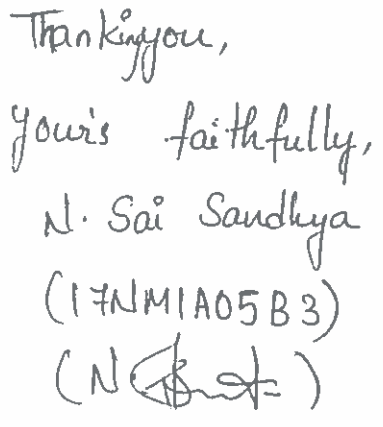 Thanking you,
your's faithfully,
N. Sai Sandhya
(17NM1A05B3)
(N